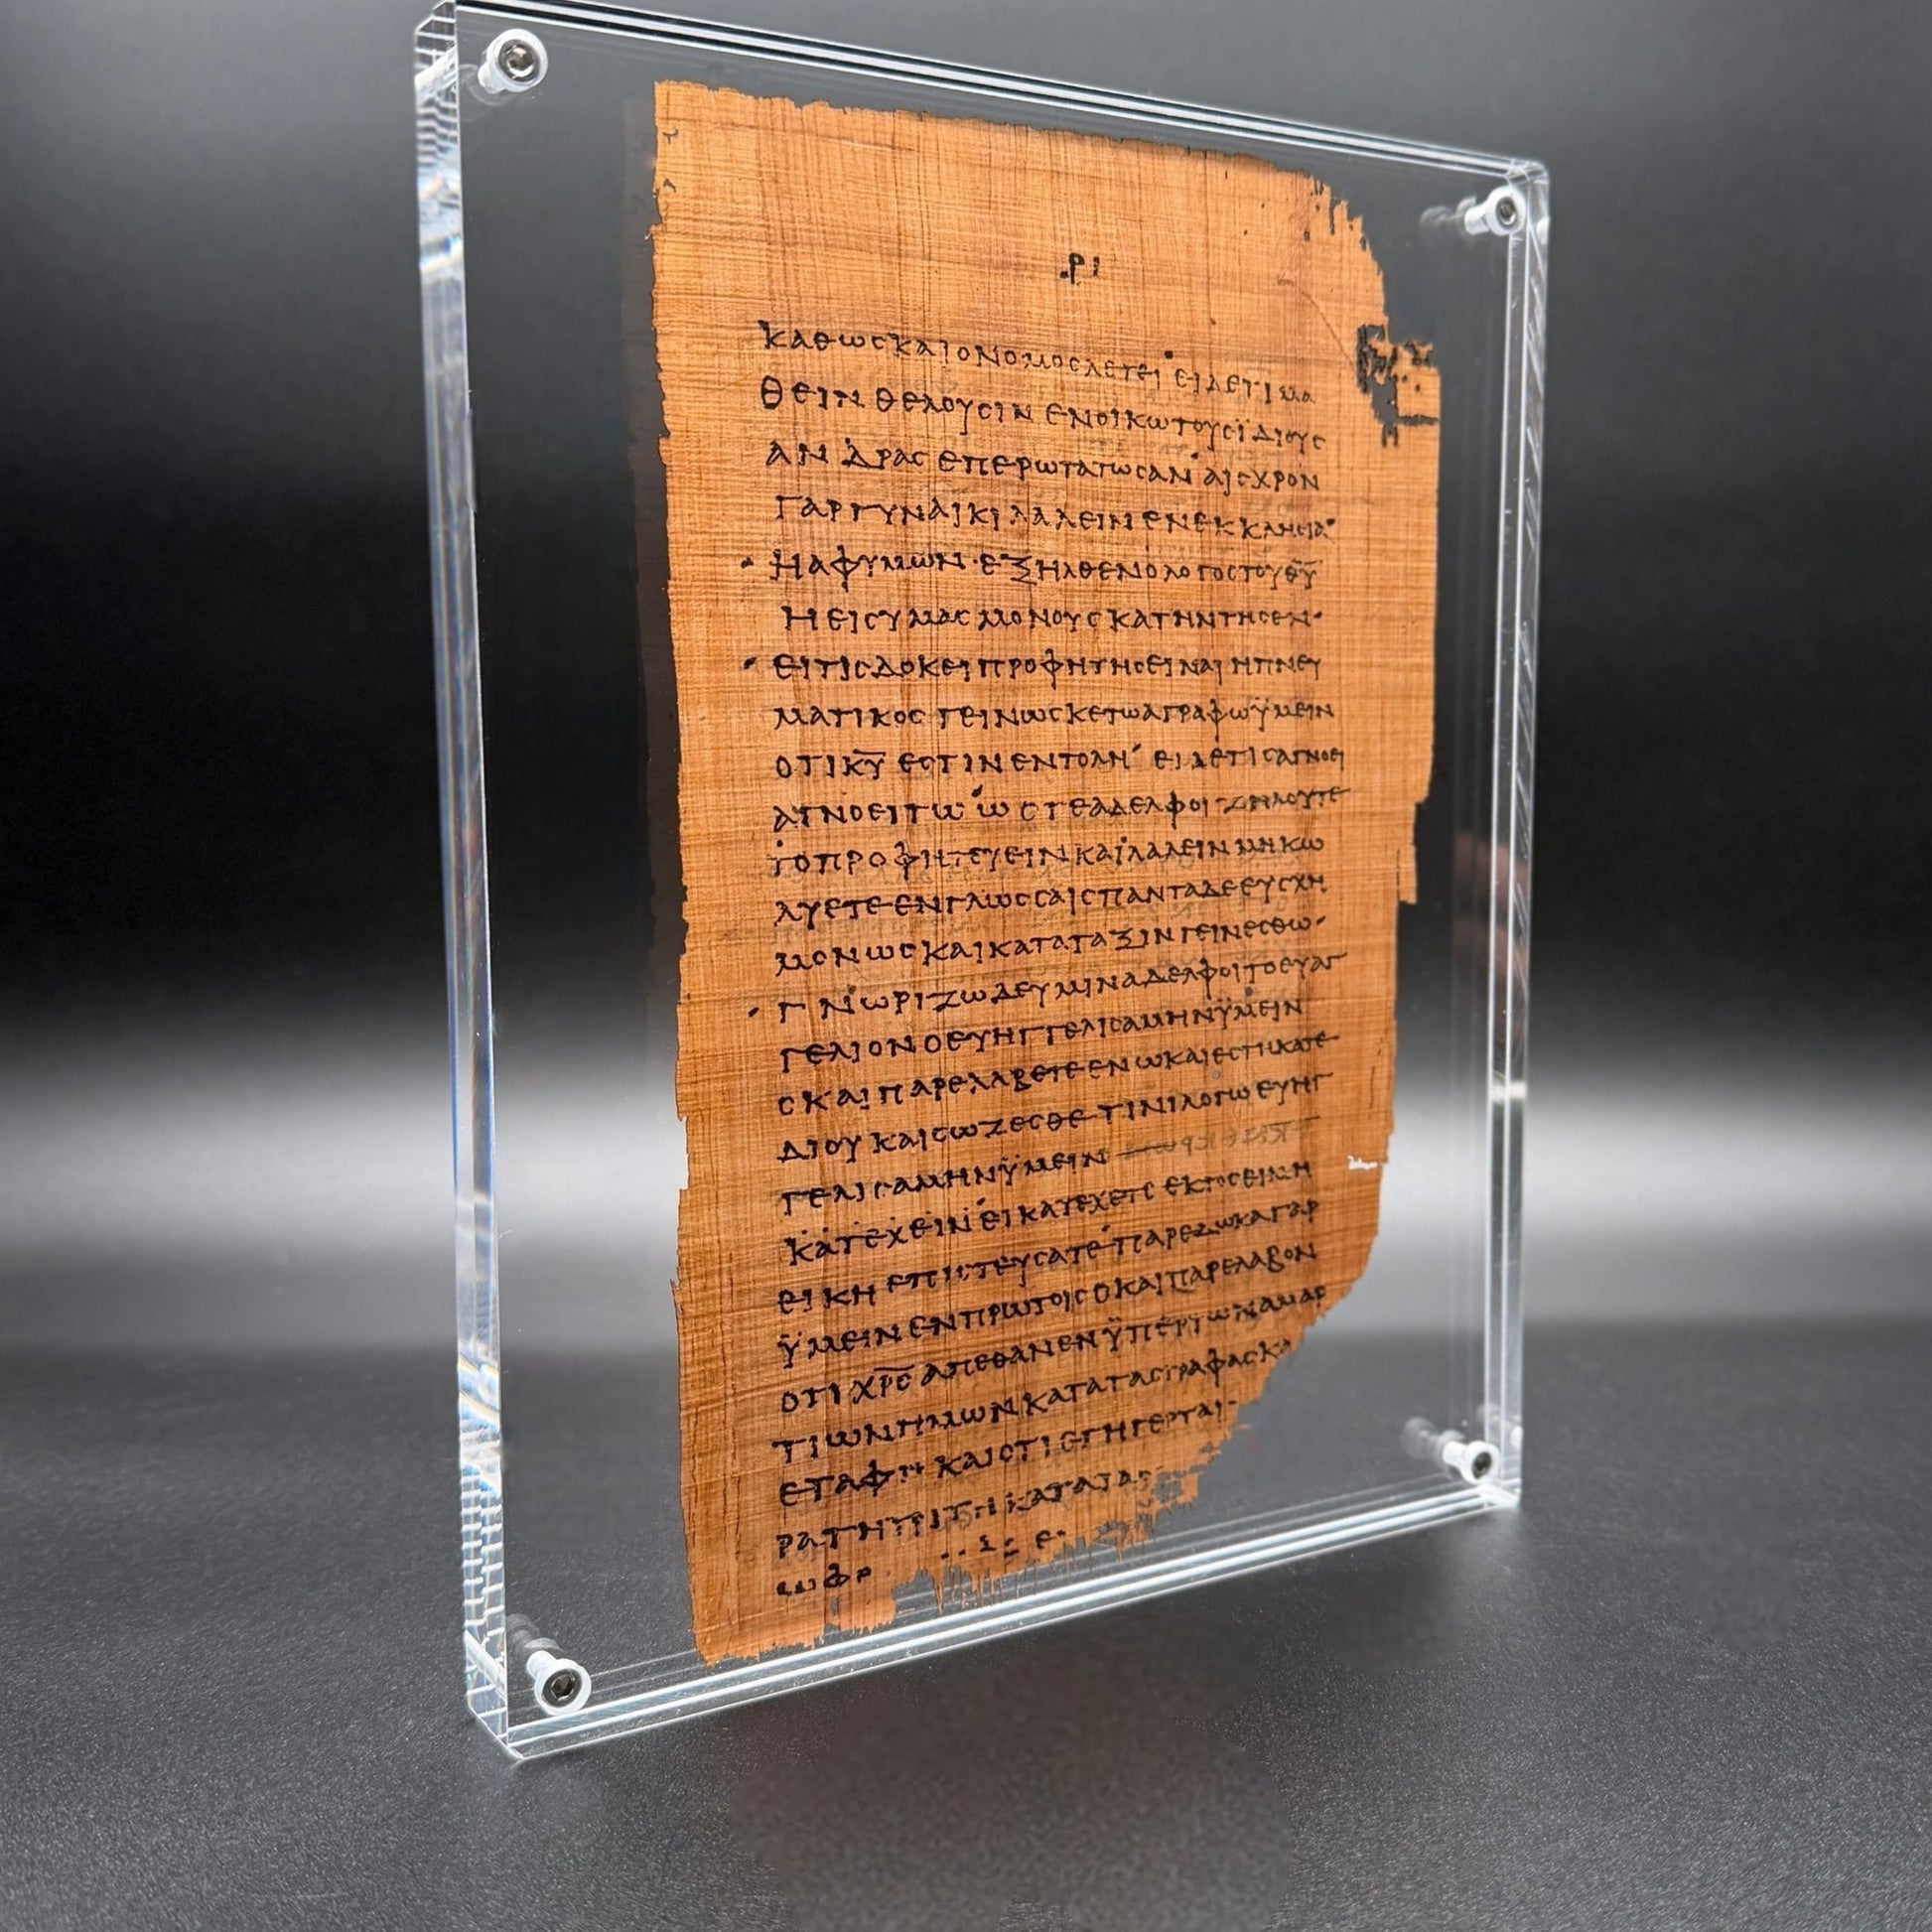 ΡΙ
ΚΑΘΩϹΚΑΙΟΝΟΜΟϹΛΕΓΕΙ ΕΙΔΕΤΙΜΑ
ΘΕΙΝΘΕΛΟΥϹΙΝ ΕΝΟΙΚΩΤΟΥϹΪΔΙΟΥϹ
ΑΝΔΡΑϹ ΕΠΕΡΩΤΑΤΩϹΑΝ ΑΙϹΧΡΟΝ
ΓΑΡΓΥΝΑΙΚΙ ΛΑΛΕΙΝ ΕΝΕΚΚΛΗϹΙΑ
ΗΑΦΥΜΩΝ ΕΞΗΛΘΕΝΟΛΟΓΟϹΤΟΥΘ̅Υ̅
ΗΕΙϹΥΜΑϹΜΟΝΟΥϹΚΑΤΗΝΤΗϹΕΝ·
ΕΙΤΙϹΔΟΚΕΙΠΡΟΦΗΤΗϹΕΙΝΑΙΗΠΝΕΥ
ΜΑΤΙΚΟϹ ΓΕΙΝΩϹΚΕΤΩΑΓΡΑΦΩΫΜΕΙΝ
ΟΤΙΚ̅Υ̅ ΕϹΤΙΝΕΝΤΟΛΗ ΕΙΔΕΤΙϹΑΓΝΟΕΙ
ΑΓΝΟΕΙΤΩ ΩϹΤΕΑΔΕΛΦΟΙ ΖΗΛΟΥΤΕ
ΤΟΠΡΟΦΗΤΕΥΕΙΝΚΑΙΛΑΛΕΙΝΜΗΚΩ
ΛΥΕΤΕΕΝΓΛΩϹϹΑΙϹΠΑΝΤΑΔΕΕΥϹΧΗ
ΜΟΝΩϹΚΑΙΚΑΤΑΤΑΞΙΝΓΕΙΝΕϹΘΩ·
ΓΝΩΡΙΖΩΔΕΥΜΙΝΑΔΕΛΦΟΙΤΟΕΥΑΓ
ΓΕΛΙΟΝΟΕΥΗΓΓΕΛΙϹΑΜΗΝΫΜΕΙΝ
ΟΚΑΙΠΑΡΕΛΑΒΕΤΕΕΝΩΚΑΙΕϹΤΗΚΑΤΕ
ΔΙΟΥΚΑΙϹΩΖΕϹΘΕΤΙΝΙΛΟΓΩΕΥΗΓ
ΓΕΛΙϹΑΜΗΝΫΜΕΙΝ
ΚΑΤΕΧΕΙΝ ΕΙΚΑΤΕΧΕΤΕ ΕΚΤΟϹΕΙΜΗ
ΕΙΚΗΕΠΙϹΤΕΥϹΑΤΕ ΠΑΡΕΔΩΚΑΓΑΡ
ΫΜΕΙΝΕΝΠΡΩΤΟΙϹΟΚΑΙΠΑΡΕΛΑΒΟΝ
ΟΤΙΧ̅Ρ̅Ϲ̅ΑΠΕΘΑΝΕΝΫΠΕΡΤΩΝΑΜΑΡ
ΤΙΩΝΗΜΩΝΚΑΤΑΤΑϹΓΡΑΦΑϹΚΑ
ΕΤΑΦΗ ΚΑΙΟΤΙΕΓΗΓΕΡΤΑΙ
ΡΑΤΗΤΡΙΤΗΚΑΤΑΤΑϹ
ΩΦΘ